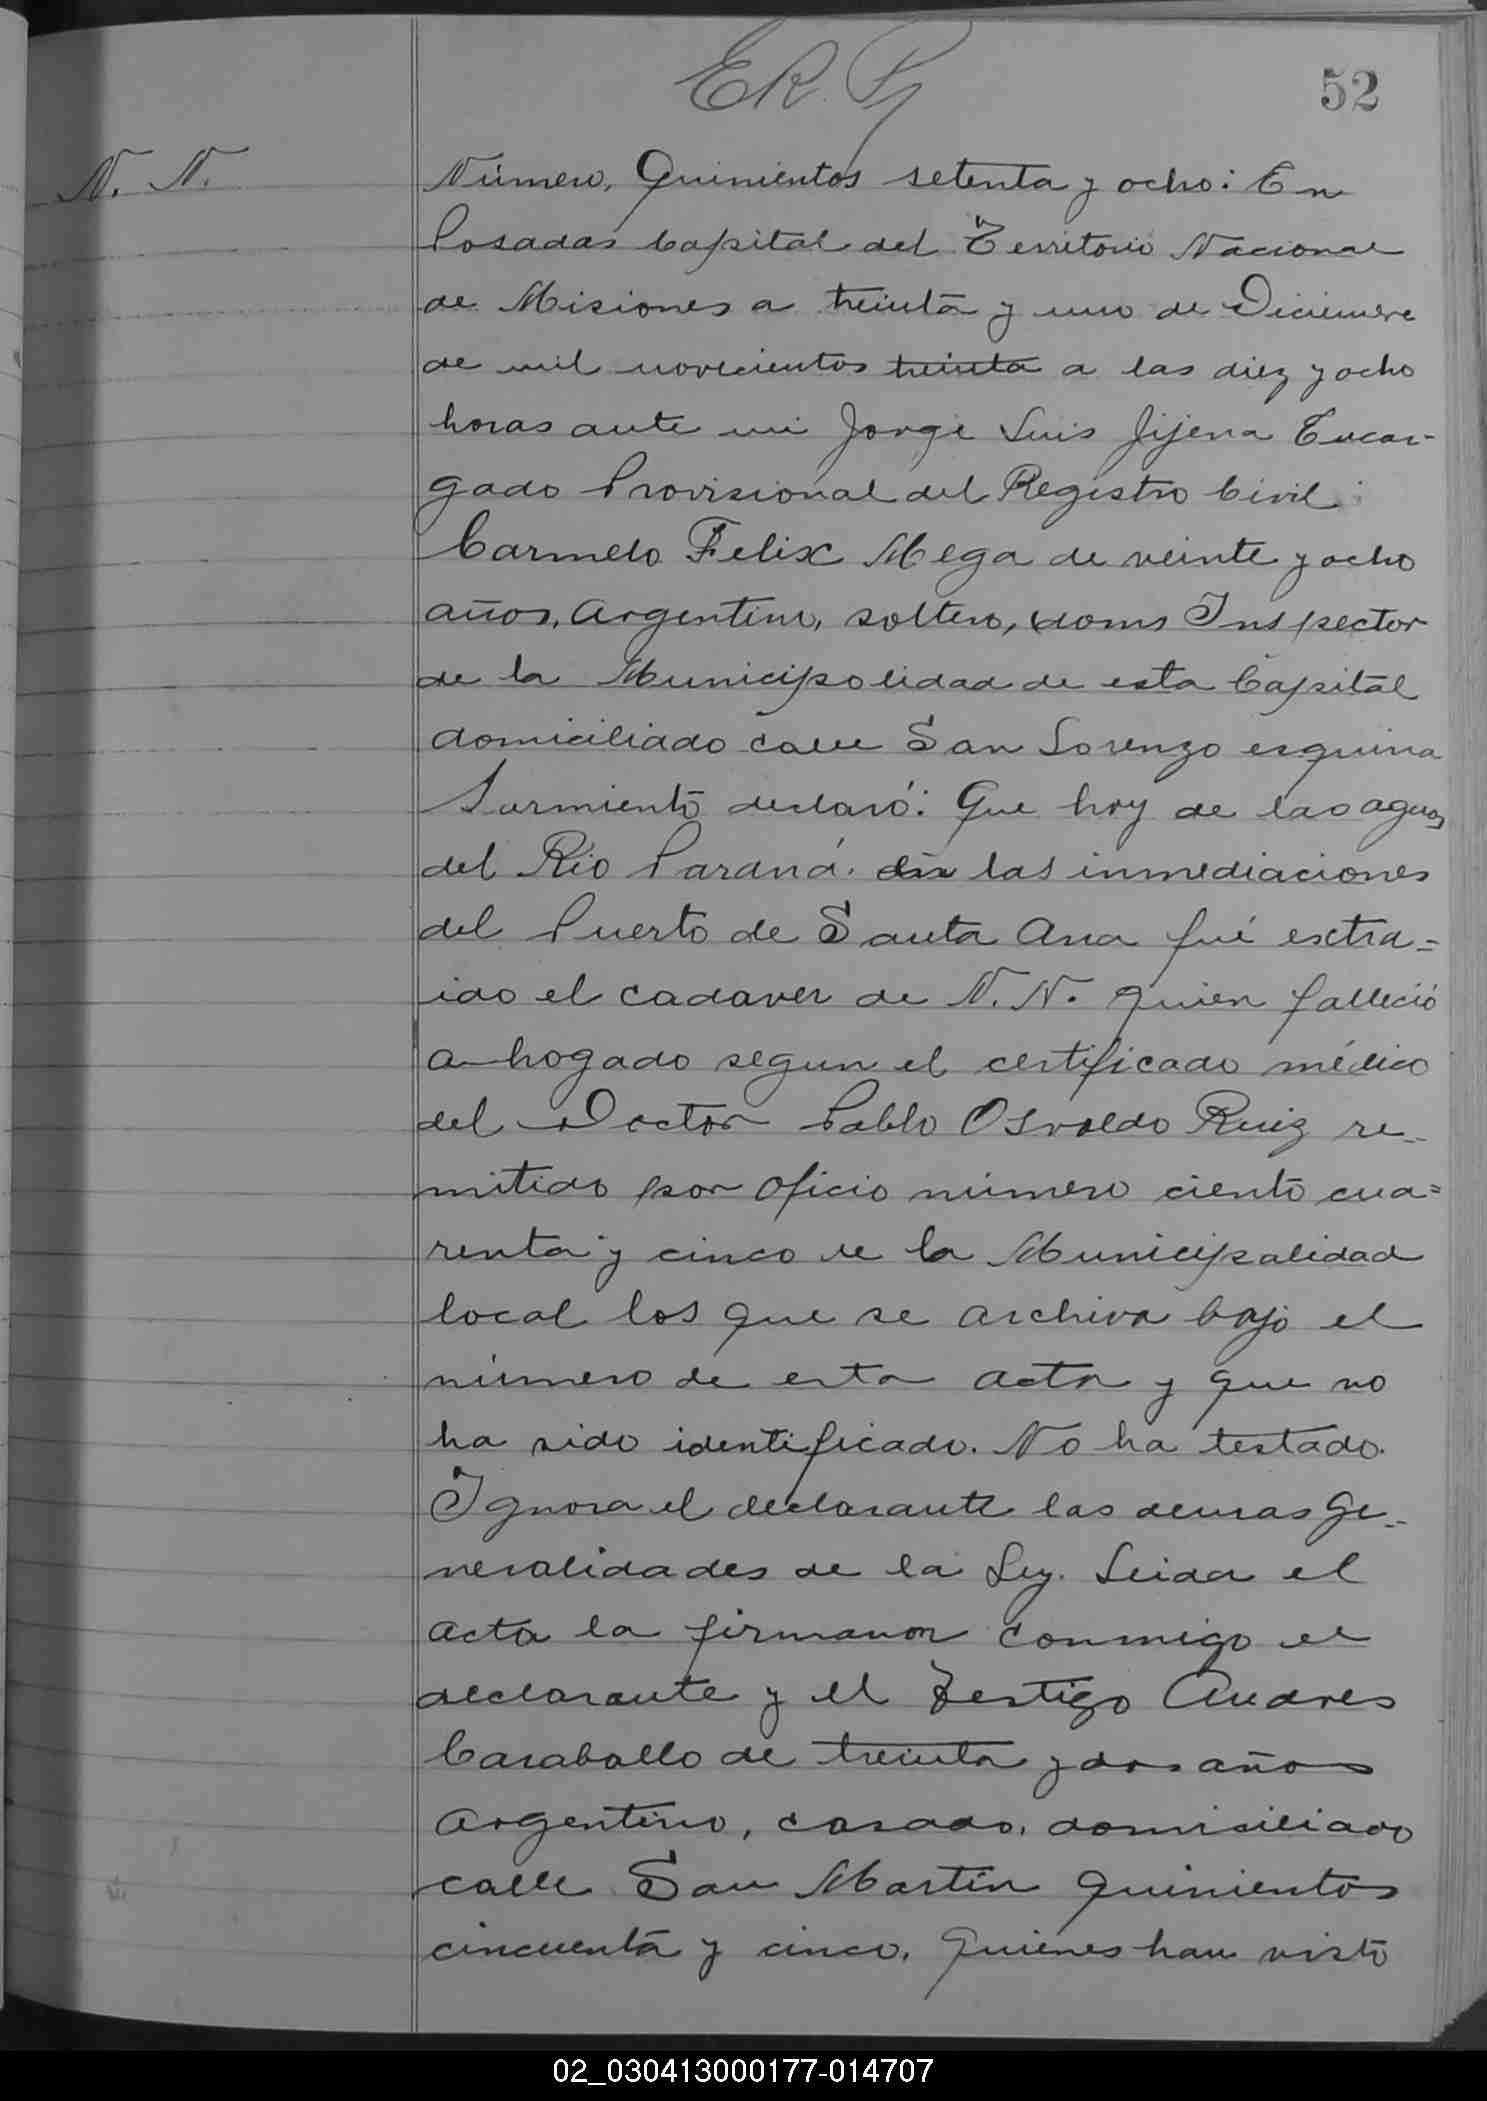 52
N. N.
Número, Quinientos setenta y ocho: En
Posadas Capital del Territorio Nacional
de Misiones a treinta y uno de Diciembre
de mil novecientos treinta a las diez y ocho
horas ante mi Jorge Luis Jijena Encar-
gado Provisional del Registro Civil:
Carmelo Felix Mega de veinte y ocho
años, Argentino, soltero, Inspector
de la Municipalidad de esta Capital
domiciliado calle San Lorenzo esquina
Sarmiento declaró: Que hoy de las aguas
del Rio Paraná. en las inmediaciones
del Puerto de Santa Ana fué extra=
ido el cadaver de N. N. quien falleció
ahogado segun el certificado médico
del Doctor Pablo Osvaldo Ruiz re-
mitido por oficio número ciento cua=
renta y cinco de la Municipalidad
local los que se archiva bajo el
número de esta acta y que no
ha sido identificado. No ha testado.
Ignora el declarante las demas ge-
neralidades de la Ley. Leida el
acta la firmaron conmigo el
declarante y el testigo Andres
Caraballo de treinta y dos años
Argentino, casado, domiciliado
calle San Martín quinientos
cincuenta y cinco, quienes han visto
02_030413000177-014707